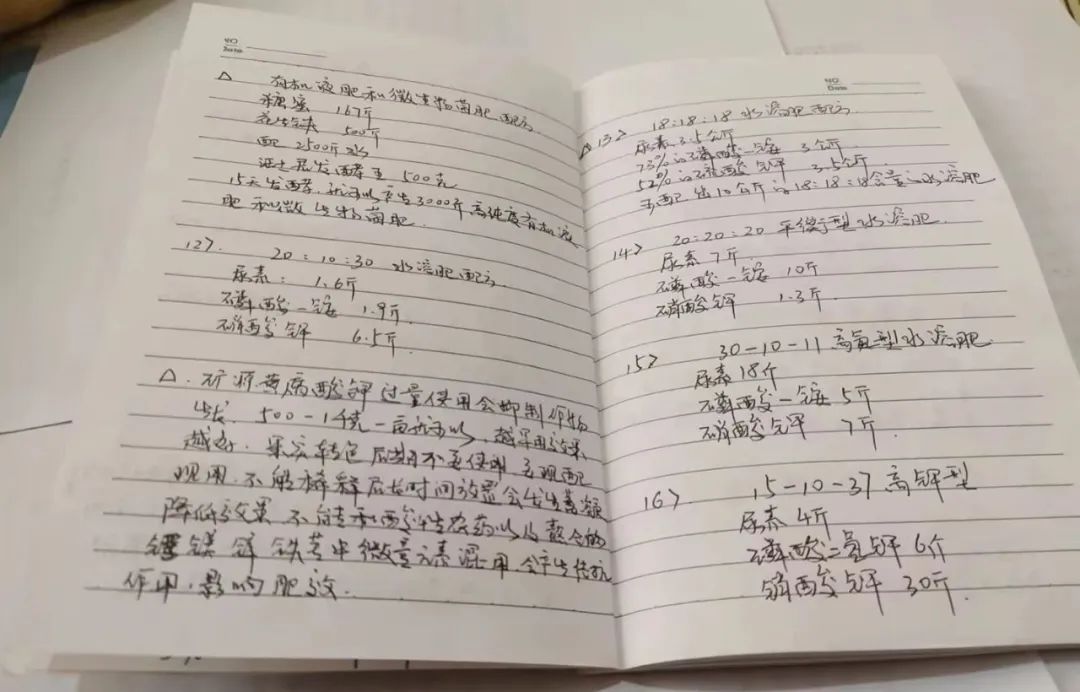 NO
Date
△ 有机液肥和微生物菌肥配方
糖蜜 167斤
花生麸 500斤
配 2500斤水
泥土, 发酵 500克
15天发酵, 就可以产出3000斤高纯度有机液
肥和微生物菌肥.
12>. 20:10:30 水溶肥配方.
尿素: 1.6斤
磷酸一铵 1.9斤
硝酸钾 6.5斤
△. 矿源黄腐酸钾过量使用会抑制作物
生长. 500-1千克一亩就可以, 越早用效果
越好. 果实转色后期不要使用 要现配
现用. 不能稀释后长时间放置会发生
降低效果 不能和酸性农药以及螯合的
镁 锌 铁等中微量元素混用 会产生拮抗
作用. 影响肥效.
NO
Date
△13> 18:18:18 水溶肥配方
尿素 3.5公斤
73%的磷酸一铵 3公斤
52%的硫酸钾 3.5公斤.
配出10公斤的18:18:18含量的水溶肥
14> 20:20:20 平衡型水溶肥
尿素 7斤
磷酸一铵 10斤
硝酸钾 1.3斤.
15> 30-10-11 高氮型水溶肥
尿素 18斤
磷酸一铵 5斤
硝酸钾 7斤.
16> 15-10-37 高钾型
尿素 4斤
磷酸二氢钾 6斤
硝酸钾 30斤.